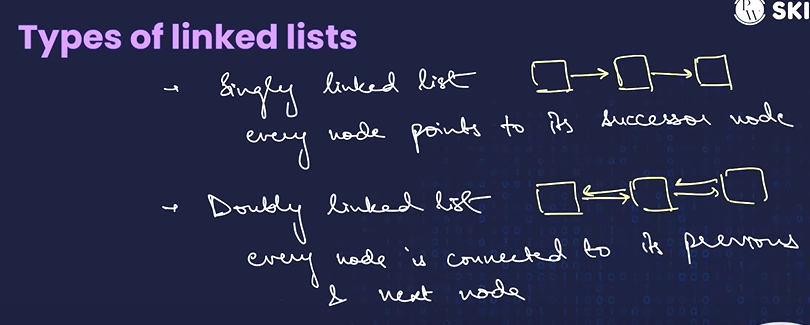 SKI
Types of linked lists
→ Singly linked list
every node points to its successor node
→ Doubly linked list
every node is connected to its previous
& next node